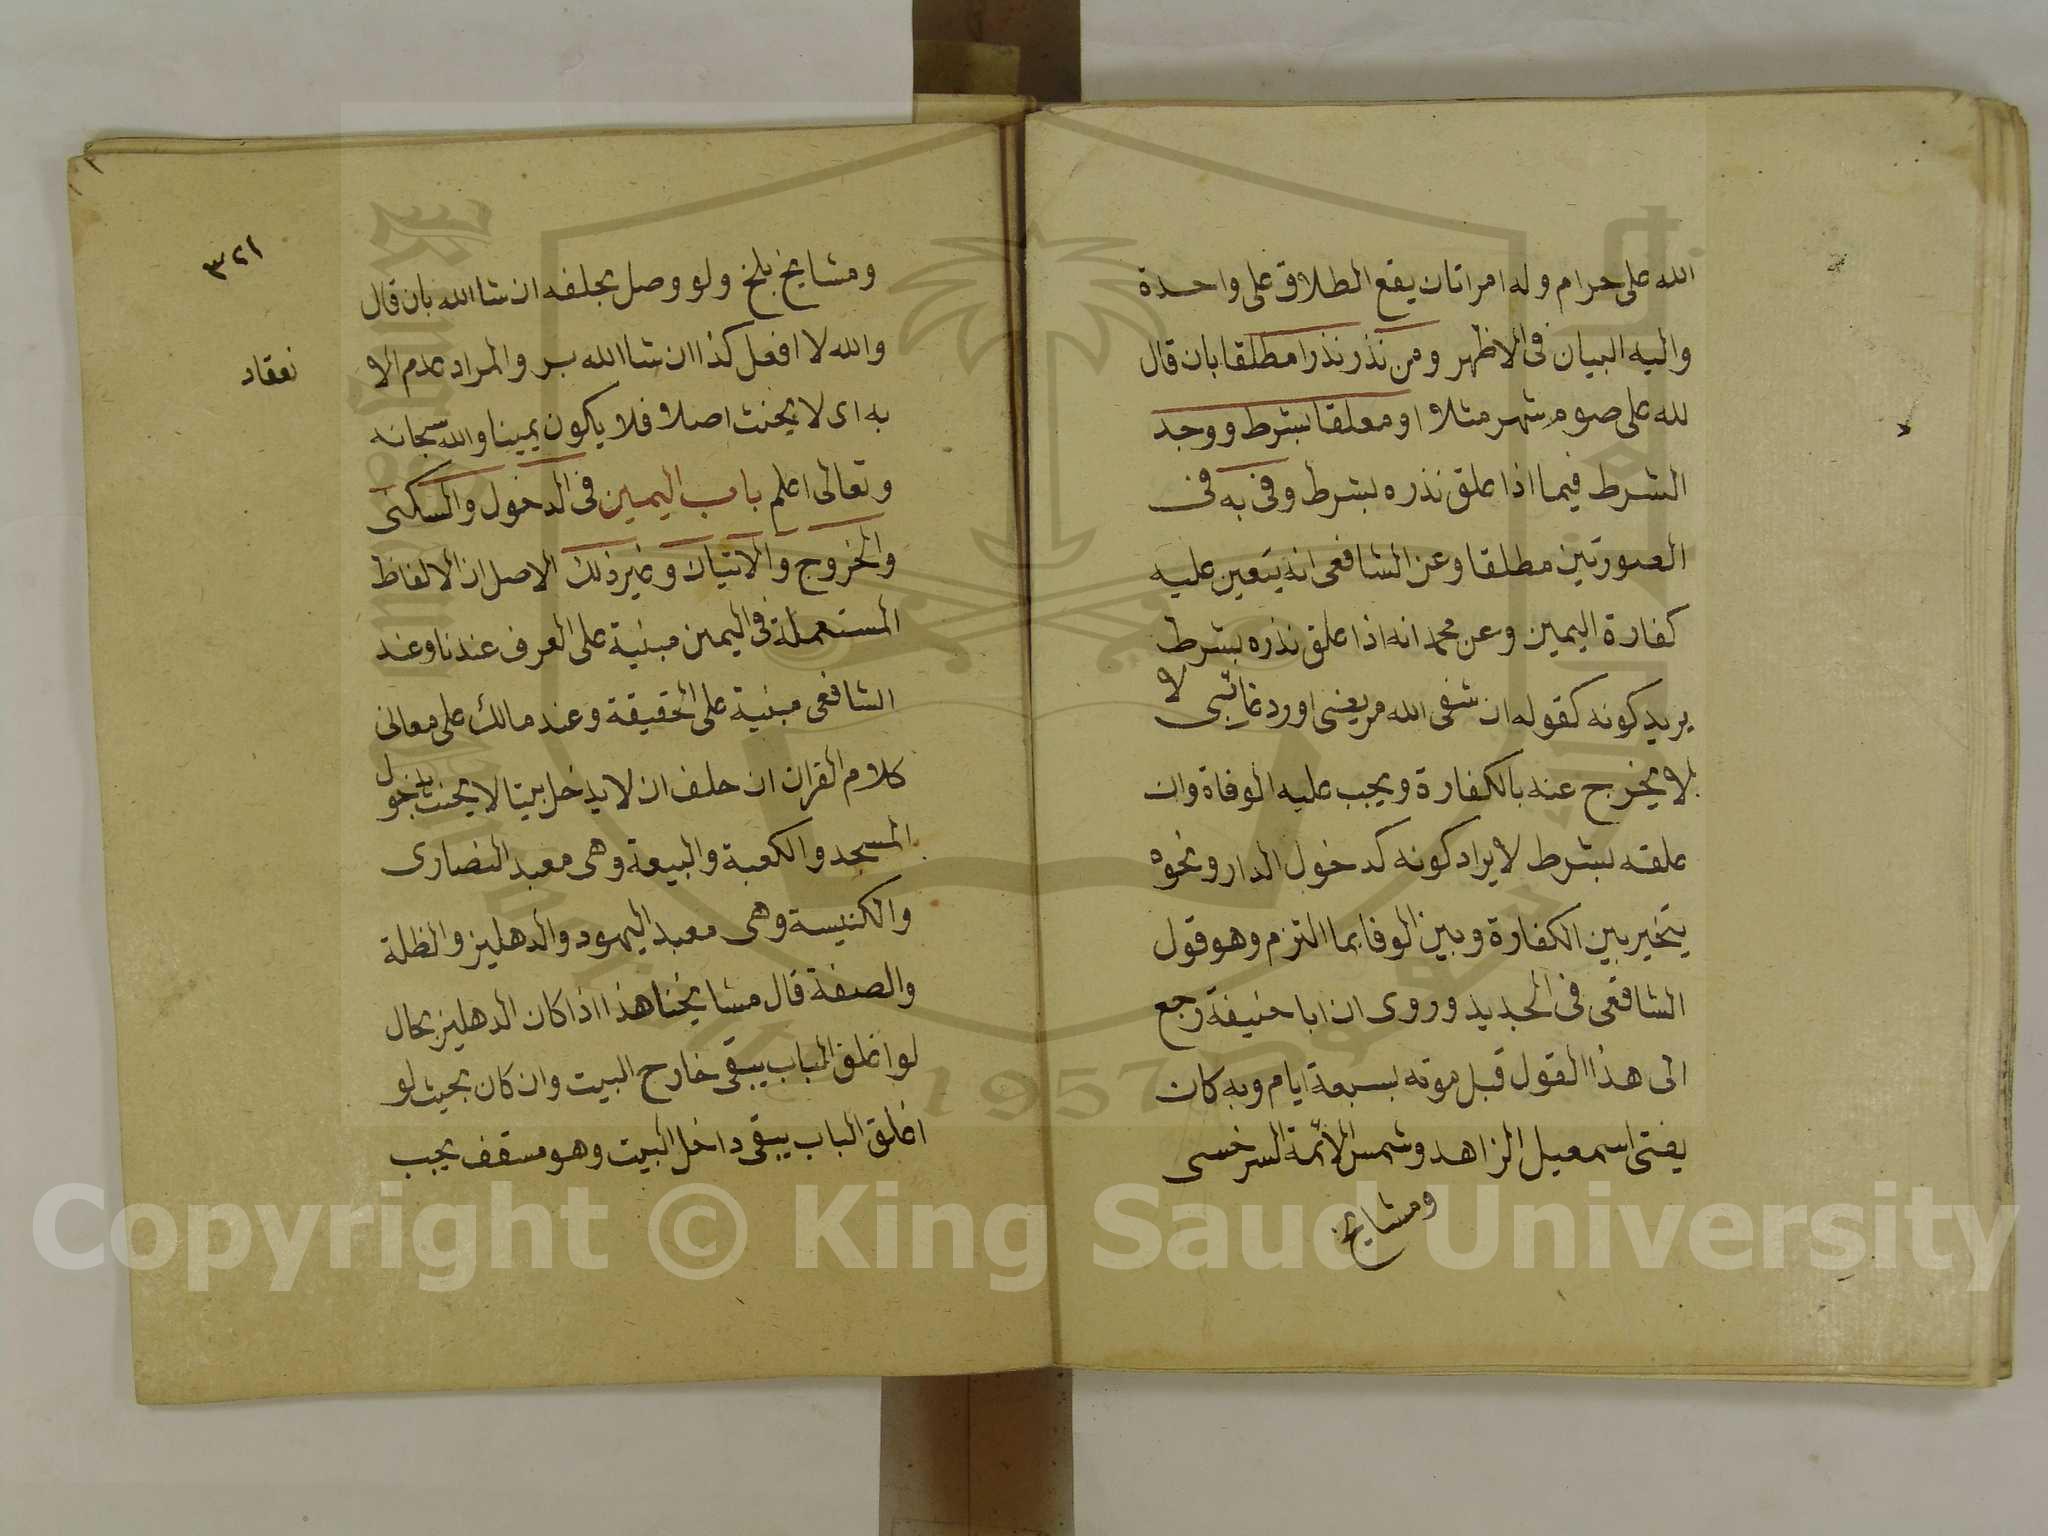 الله على حرام وله امراتان يقع الطلاق على واحدة
واليه البيان فى الاظهر ومن نذر نذرا مطلقا بان قال
لله على صوم شهر مثلا او معلقا بشرط ووجد
الشرط فيما اذا علق نذره بشرط وفى به فى
الصورتين مطلقا وعن الشافعى انه يتعين عليه
كفارة اليمين وعن محمد انه اذا علق نذره بشرط
يريد كونه كقوله ان شفى الله مريضى او رد غائبى لا
لا يخرج عنه بالكفارة ويجب عليه الوفاة وان
علقه بشرط لا يراد كونه كدخول الدار ونحوه
يتخير بين الكفارة وبين الوفا بما التزم وهو قول
الشافعى فى الجديد وروى ان ابا حنيفة رجع
الى هذا القول قبل موته بسبعة ايام وبه كان
يفتى اسمعيل الزاهد وشمس الائمة السرخسى
ومشايخ
٣٢١
ومشايخ بلخ ولو وصل بحلفه ان شا الله بان قال
والله لا افعل كذا ان شا الله بر والمراد عدم الا
نعقاد
به اى لا يحنث اصلا فلا يكون يمينا والله سبحانه
وتعالى اعلم باب اليمين فى الدخول والسكنى
والخروج والاتيان وغير ذلك الاصل ان الالفاظ
المستعملة فى اليمين مبنية على العرف عندنا وعند
الشافعى مبنية على الحقيقة وعند مالك على معانى
كلام القران ان حلف ان لا يدخل بيتا لا يحنث بدخول
المسجد والكعبة والبيعة وهى معبد النصارى
والكنيسة وهى معبد اليهود والدهليز والظلة
والصفة قال مشايخنا هذا اذا كان الدهليز بحال
لو اغلق الباب يبقى خارج البيت وان كان بحيث لو
اغلق الباب يبقى داخل البيت وهو مسقف يجب
1957
Copyright © King Saud University